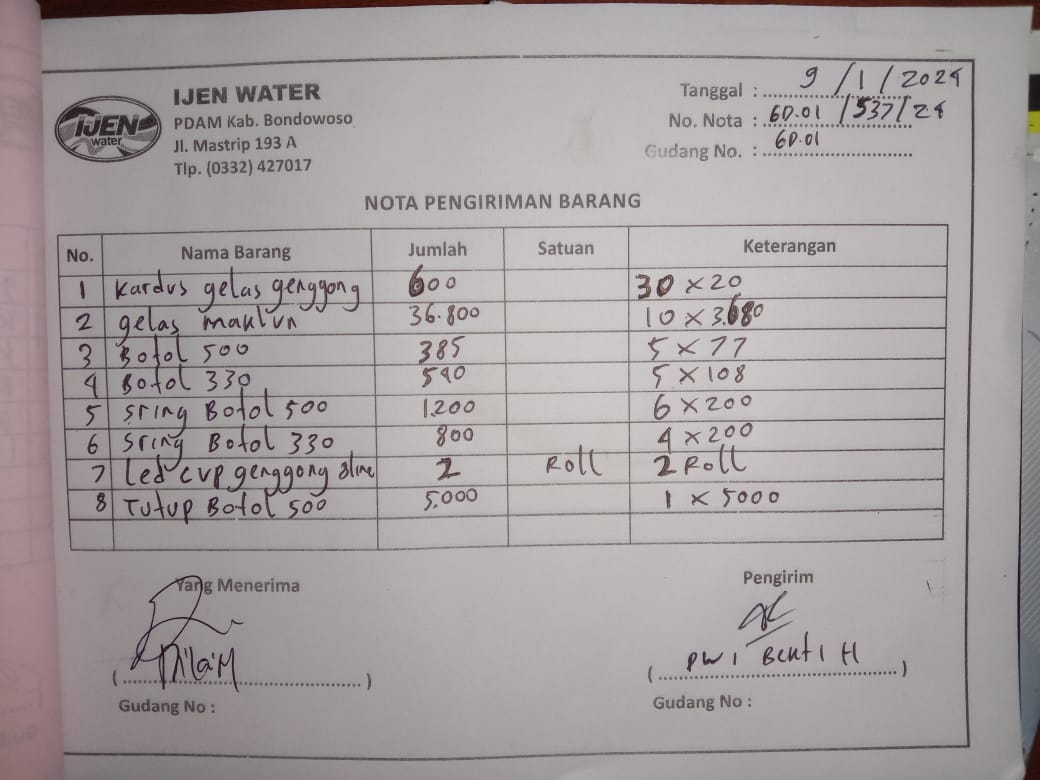 IJEN
water
IJEN WATER
PDAM Kab. Bondowoso
Jl. Mastrip 193 A
Tlp. (0332) 427017
Tanggal : 9 / 1 / 2024
No. Nota : GD.01 / 537 / 24
Gudang No. : GD.01
NOTA PENGIRIMAN BARANG
No. Nama Barang Jumlah Satuan Keterangan
1 Kardus gelas genggong 600 30 x 20
2 gelas maklun 36.800 10 x 3.680
3 Botol 500 385 5 x 77
4 Botol 330 540 5 x 108
5 Sring Botol 500 1.200 6 x 200
6 Sring Botol 330 800 4 x 200
7 Led cup genggong 2 Roll 2 Roll
8 Tutup Botol 500 5.000 1 x 5000
Yang Menerima
Pengirim
(..........)
(..........)
Gudang No :
Gudang No :